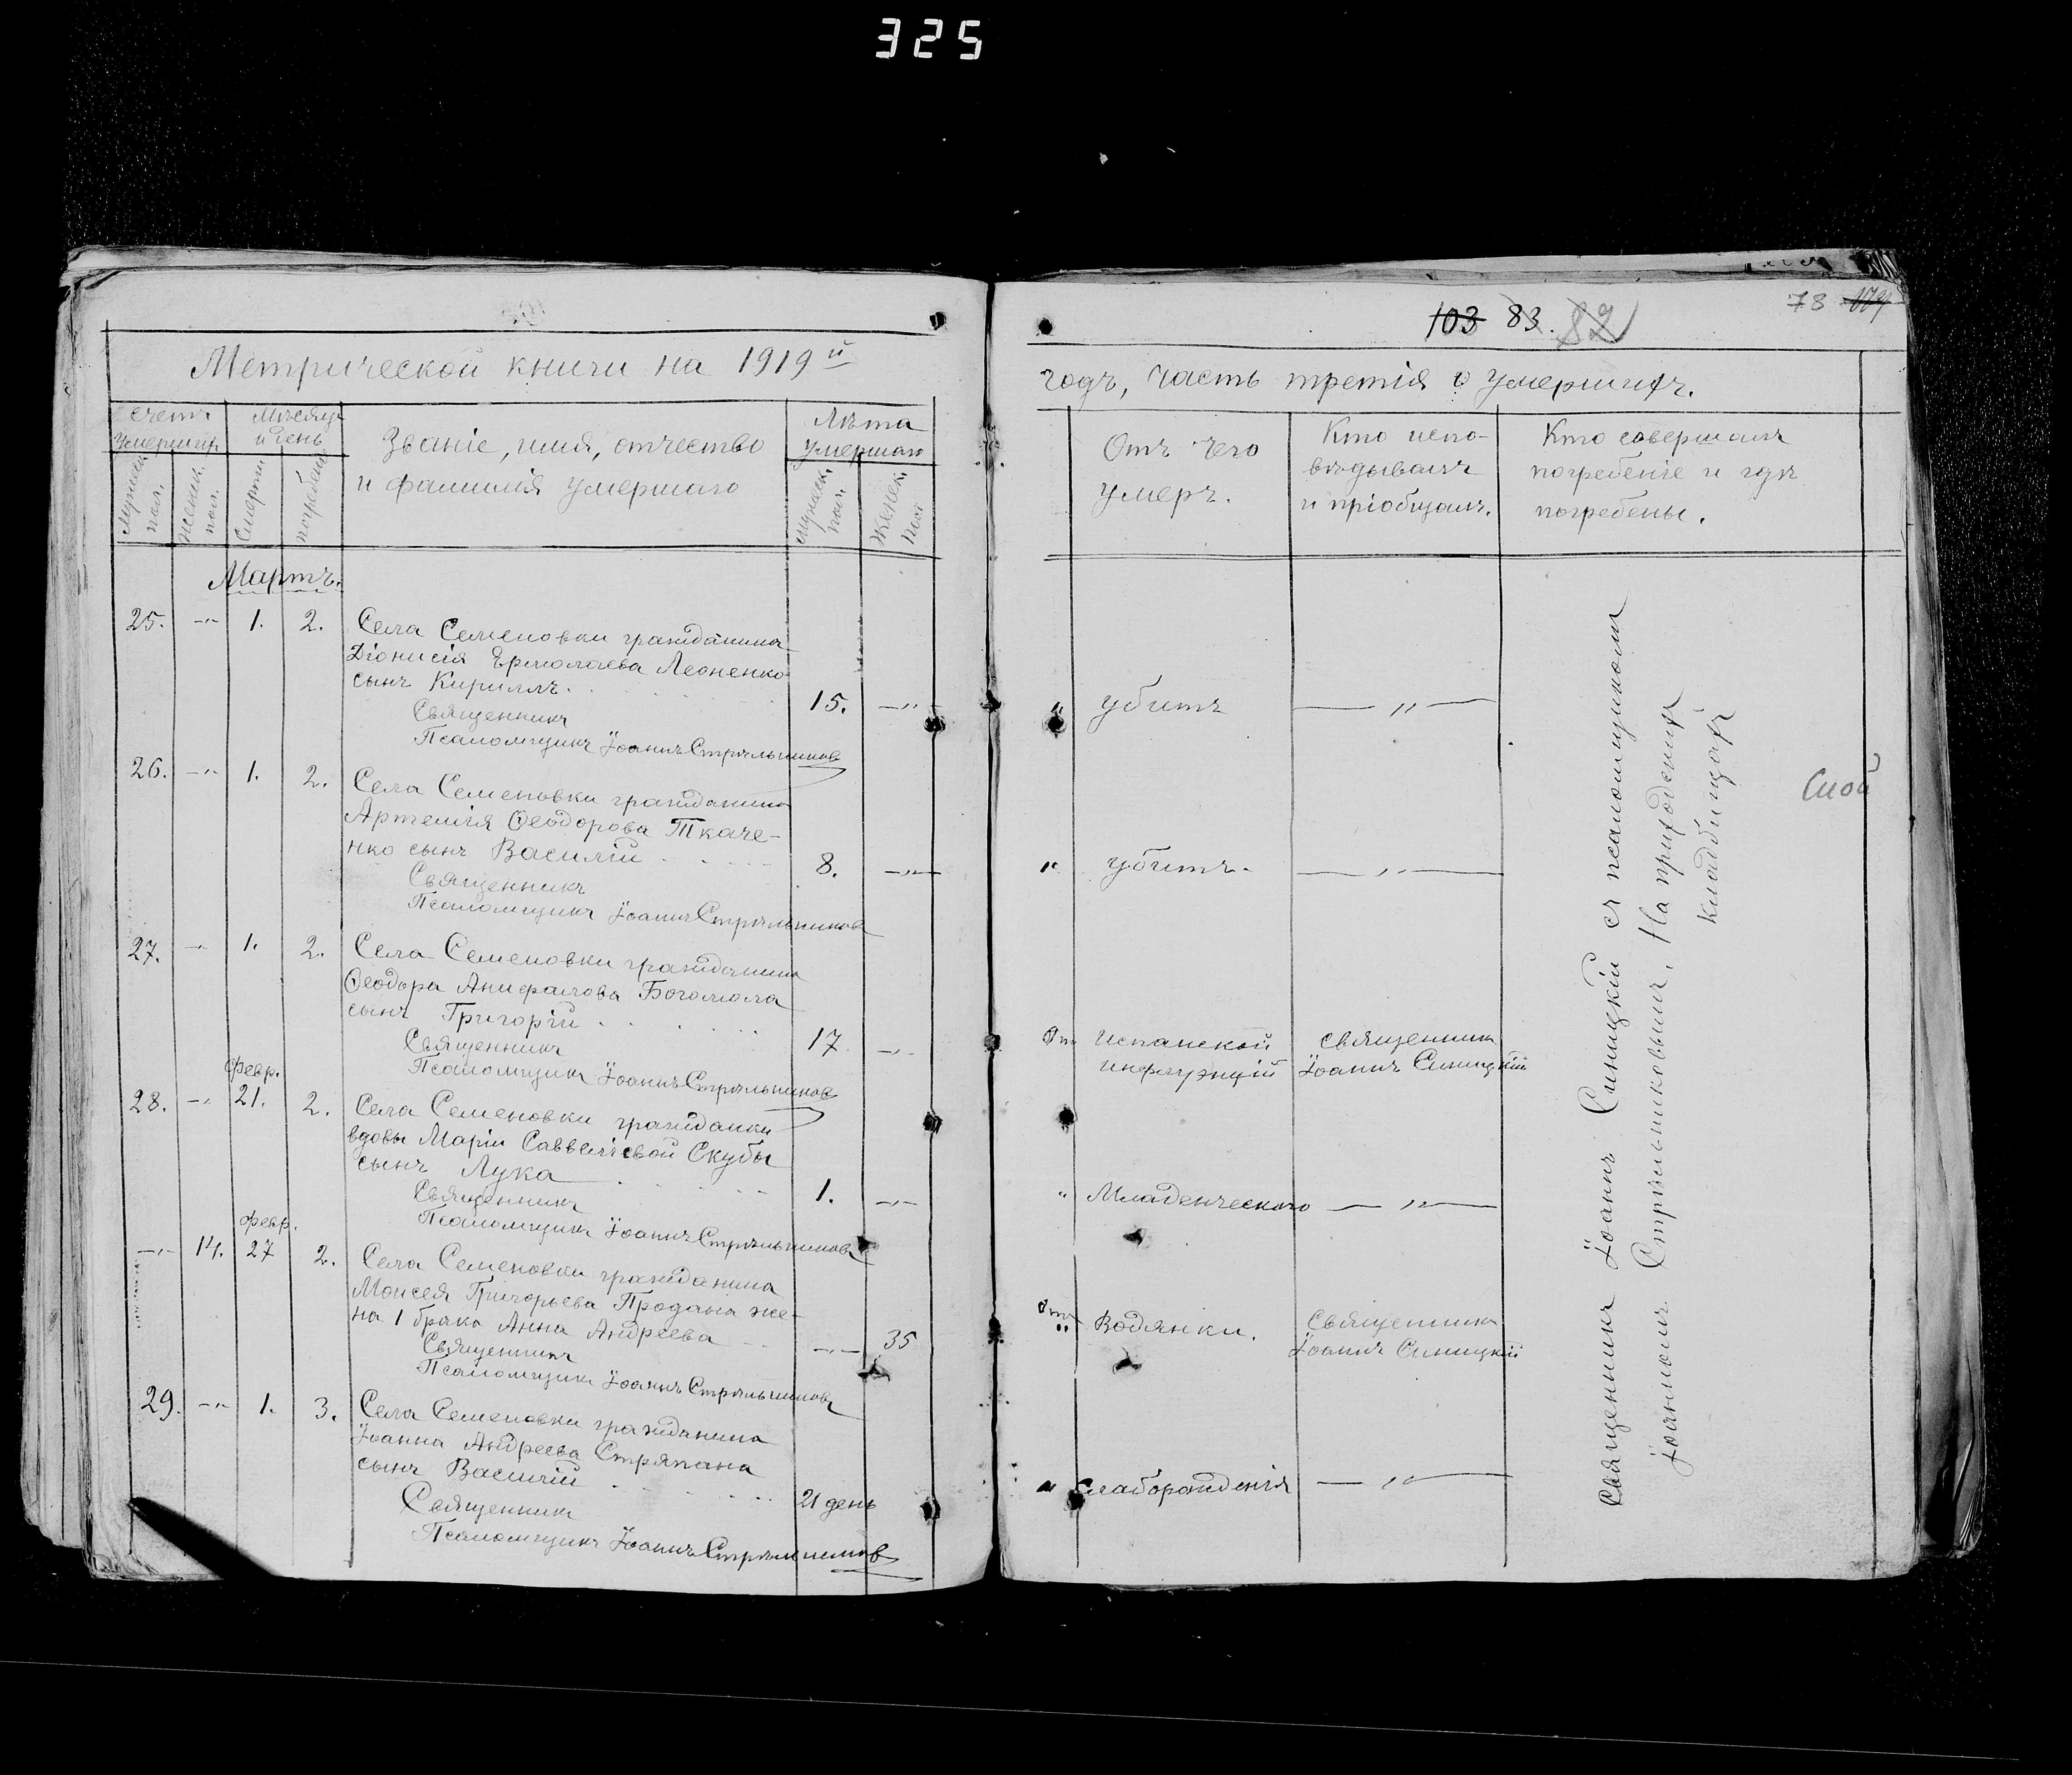 325
Метрической книги на 1919й
Счетъ умершихъ
Мужеск. пол.
Женск. пол.
Мѣсяцъ и день
Смерти
погребенія
Званіе, имя, отчество
и фамилія умершаго
Лѣта умершаго
Мужеск. пол.
Женск. пол.
Мартъ.
25. -„- 1. 2. Села Семеновки гражданина
Діонисія Ермолаева Леоненко
сынъ Кириллъ. 15. -„-
Священникъ
Псаломщикъ Іоаннъ Стрѣльниковъ
26. -„- 1. 2. Села Семеновки гражданина
Артемія Ѳеодорова Ткаче-
нко сынъ Василій 8. -„-
Священникъ
Псаломщикъ Іоаннъ Стрѣльниковъ
27. -„- 1. 2. Села Семеновки гражданина
Ѳеодора Анифалова Богомола
сынъ Григорій 17 -„-
Священникъ
Псаломщикъ Іоаннъ Стрѣльниковъ
февр.
28. -„- 21. 2. Села Семеновки гражданки
вдовы Маріи Савватіевой Скубы
сынъ Лука 1. -„-
Священникъ
Псаломщикъ Іоаннъ Стрѣльниковъ
февр.
-„- 14. 27 2. Села Семеновки гражданина
Моисея Григорьева Продана же-
на 1 брака Анна Андреева -„- 35
Священникъ
Псаломщикъ Іоаннъ Стрѣльниковъ
29. -„- 1. 3. Села Семеновки гражданина
Іоанна Андреева Стряпана
сынъ Василій 21 день
Священникъ
Псаломщикъ Іоаннъ Стрѣльниковъ
103 83. 82
78
годъ, часть третія о умершихъ.
Отъ чего
умеръ.
Кто испо-
вѣдывалъ
и пріобщалъ.
Кто совершалъ
погребеніе и гдѣ
погребены.
„ убитъ -„-
„ убитъ. -„-
Отъ испанской священникъ
инфлуэнціи Іоаннъ Синицкій
„ Младенческаго -„-
Отъ водянки. Священникъ
Іоаннъ Синицкій
„ Слаборожденія -„-
Священникъ Іоаннъ Синицкій съ псаломщикомъ
Іоанномъ Стрѣльниковымъ. На приходскихъ
кладбищахъ